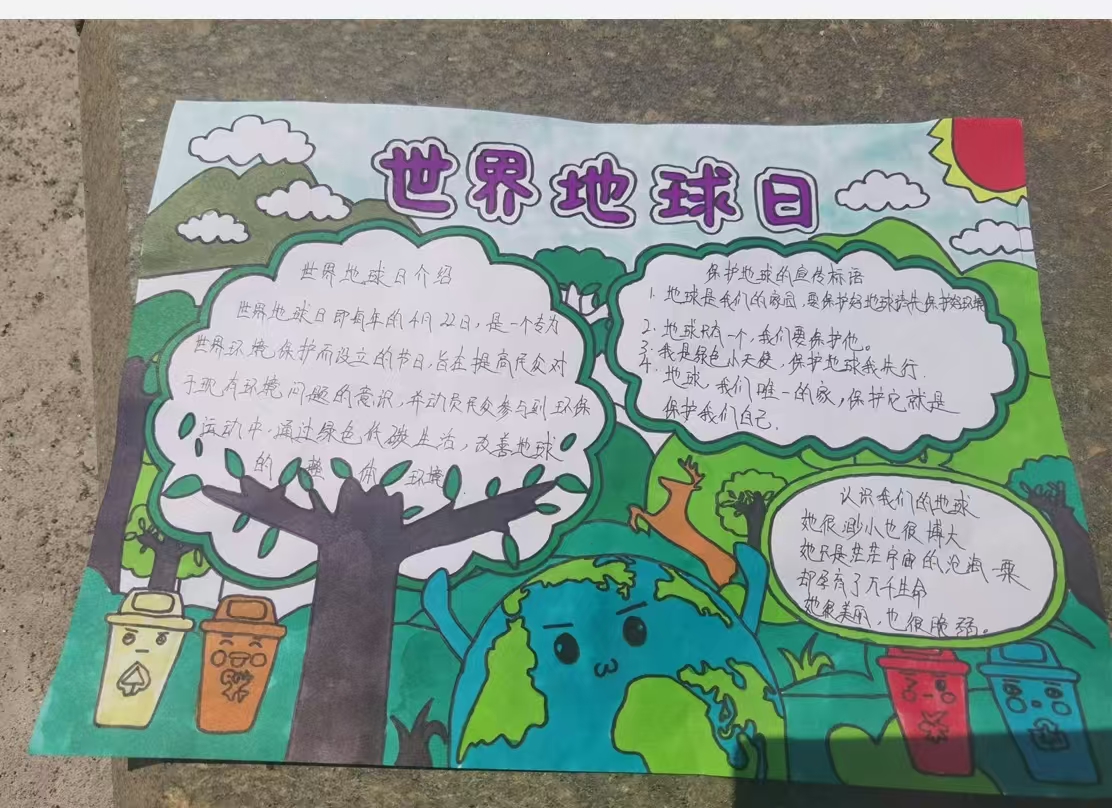 世界地球日
世界地球日介绍
世界地球日即每年的4月22日，是一个专为
世界环境保护而设立的节日，旨在提高民众对
于现有环境问题的意识，并动员民众参与到环保
运动中，通过绿色低碳生活，改善地球
的整体环境。
保护地球的宣传标语
1. 地球是我们的家园，要保护好地球请先保护好环境
2. 地球只有一个，我们要保护他。
3. 我是绿色小天使，保护地球我先行.
4. 地球，我们唯一的家，保护它就是
保护我们自己.
认识我们的地球
她很渺小也很博大
她只是茫茫宇宙的沧海一粟
却孕育了万千生命
她很美丽，也很脆弱。